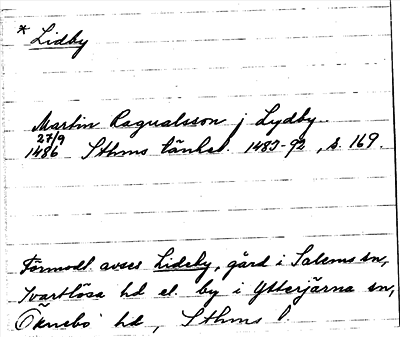 * Lidby
Martin Ragualsson j Lydby.
27/9
1486 Sthms tänkeb. 1483-92, s. 169.
Förmodl. avses Lideby, gård i Salems sn,
Svartlösa hd el. by i Ytterjärna sn,
Öknebo hd, Sthms l.